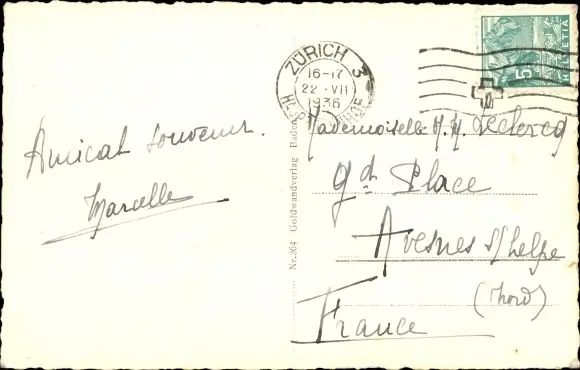 Amical souvenir.
Marcelle
Nr. 364 Goldwandverlag Baden
ZÜRICH 3
16-17
22·VII
1936
5
HELVETIA
Mademoiselle M. M. Leclercq
gd Place
Avesnes s/helpe
(Nord)
France